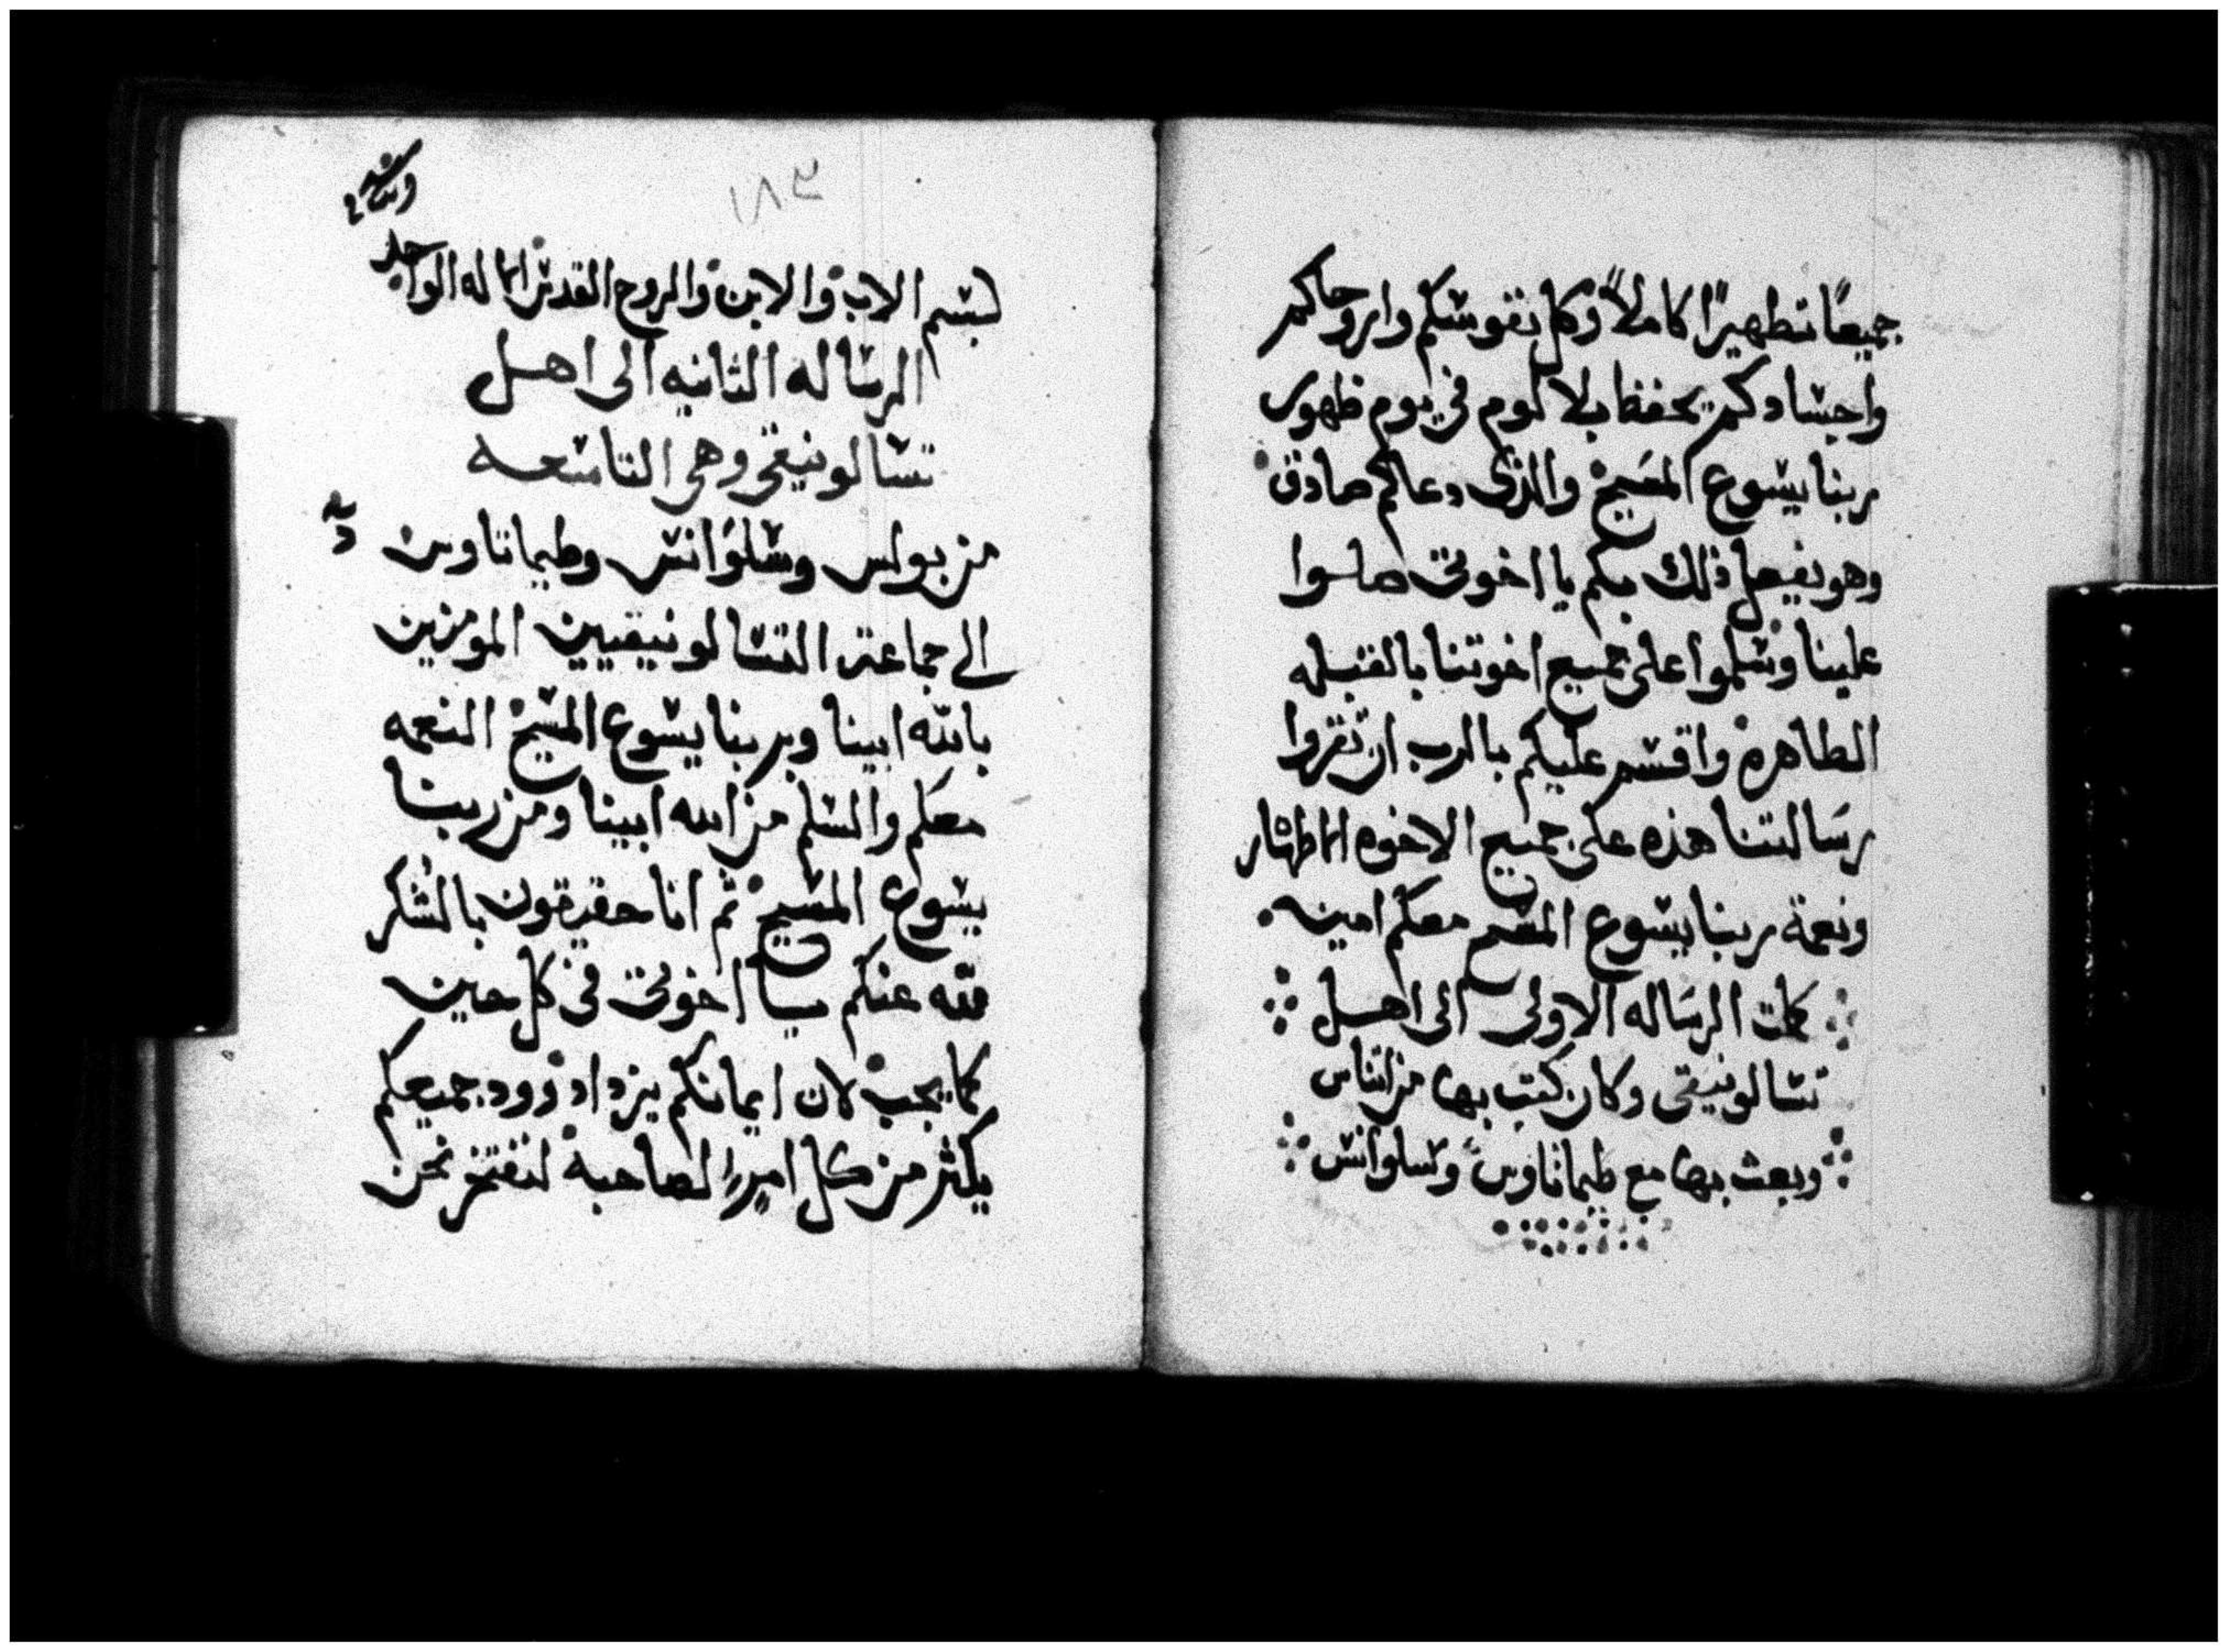 جميعًا تطهيرًا كاملاً وكل نفوسكم وارواحكم
واجسادكم يحفظ بلا لوم في يوم ظهور
ربنا يسوع المسيح والذى دعاكم صادق
وهو يفعل ذلك بكم يا اخوتى صلوا
علينا وسلموا على جميع اخوتنا بالقبله
الطاهرة واقسم عليكم بالرب ان تقروا
رسالتنا هذه على جميع الاخوه الاطهار
ونعمة ربنا يسوع المسيح معكم امين
كملت الرساله الاولى الى اهل
تسالونيقى وكان كتب بها من اثناس
وبعث بها مع طيماتاوس وسلوانس
١٨٣
بسم الاب والابن والروح القدس الاله الواحد
الرساله الثانيه الى اهل
تسالونيقى وهى التاسعه
من بولس وسلوانس وطيماتاوس
الى جماعة التسالونيقيين المومنين
بالله ابينا وبربنا يسوع المسيح النعمه
معكم والسلم من الله ابينا ومن ربنا
يسوع المسيح ثم انا حقيقون بالشكر
لله عنكم يا اخوتى فى كل حين
كما يجب لان ايمانكم يزداد وود جميعكم
يكثر من كل امرء لصاحبه لنفتخر نحن